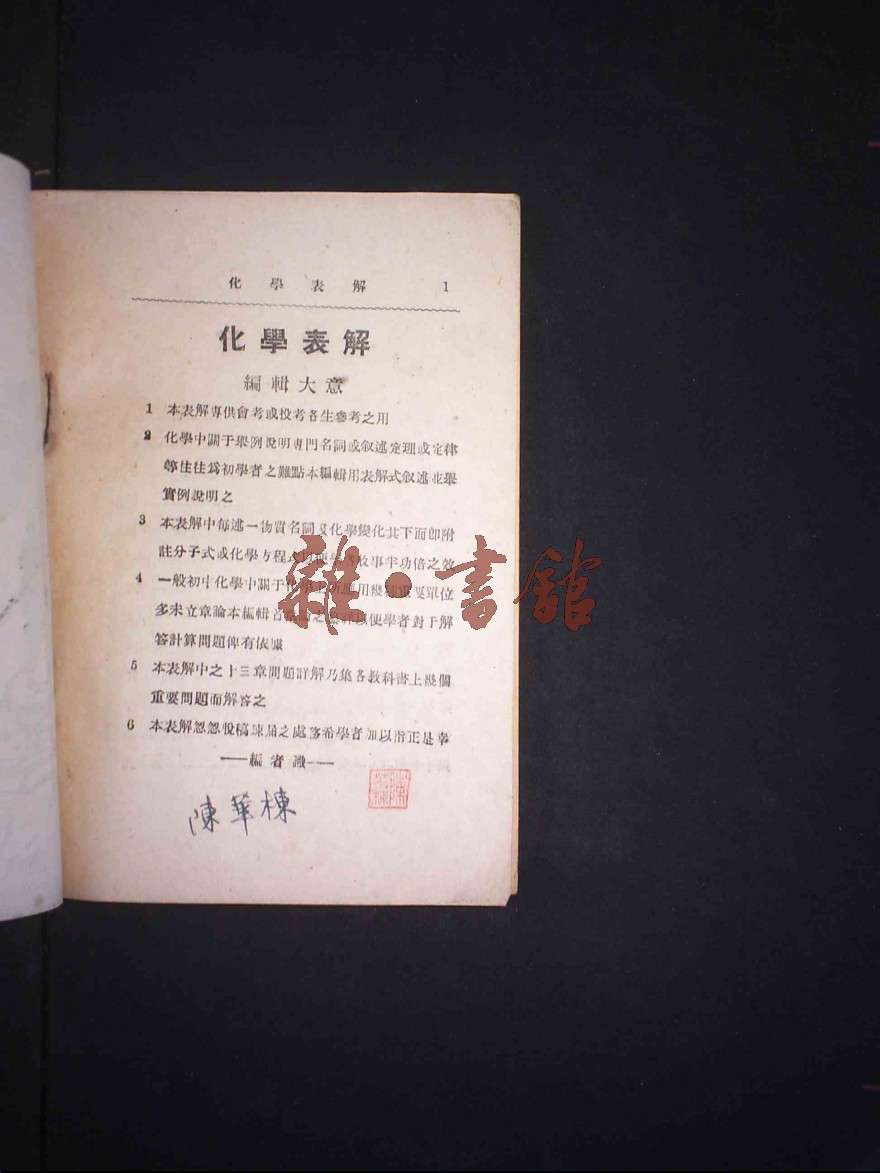 化學表解 1
化學表解
編輯大意
1 本表解專供會考或投考各生參考之用
2 化學中關于舉例說明專門名詞或叙述定理或定律
等往往爲初學者之難點本編輯用表解式叙述並舉
實例說明之
3 本表解中每述一物質名詞及化學變化其下面即附
註分子式或化學方程式以便學者收事半功倍之效
4 一般初中化學中關于化學上所應用幾種重要單位
多未立章論本編輯首章論之以便學者對于解
答計算問題俾有依據
5 本表解中之十三章問題詳解乃集各教科書上幾個
重要問題而解答之
6 本表解忽忽脫稿疎漏之處務希學者加以指正是幸
——編者識——
陳華棟
雜·書館